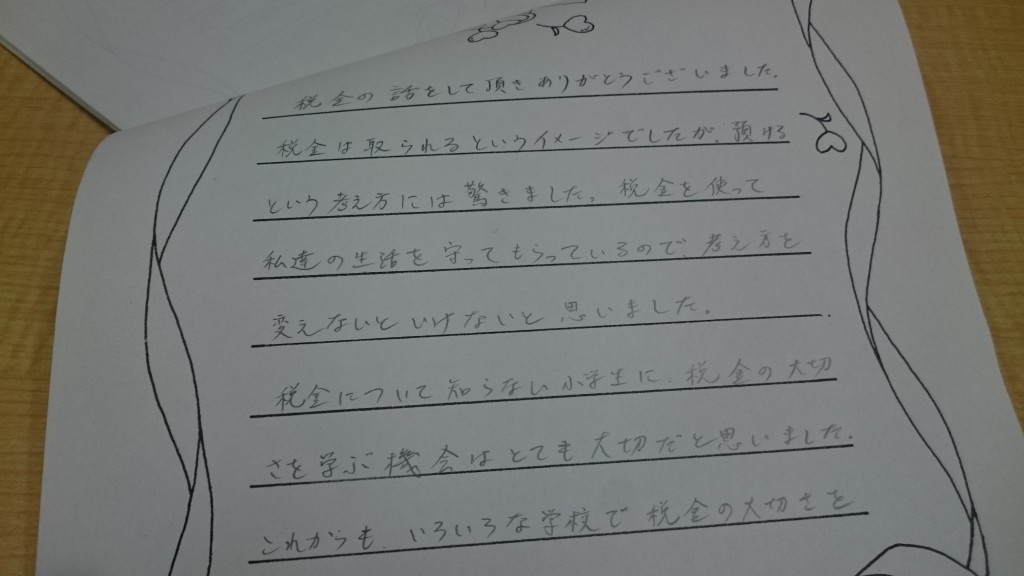 税金の話をして頂きありがとうございました。
税金は取られるというイメージでしたが、預ける
という考え方には驚きました。税金を使って
私達の生活を守ってもらっているので、考え方を
変えないといけないと思いました。
税金について知らない小学生に、税金の大切
さを学ぶ機会はとても大切だと思いました。
これからも、いろいろな学校で税金の大切さを